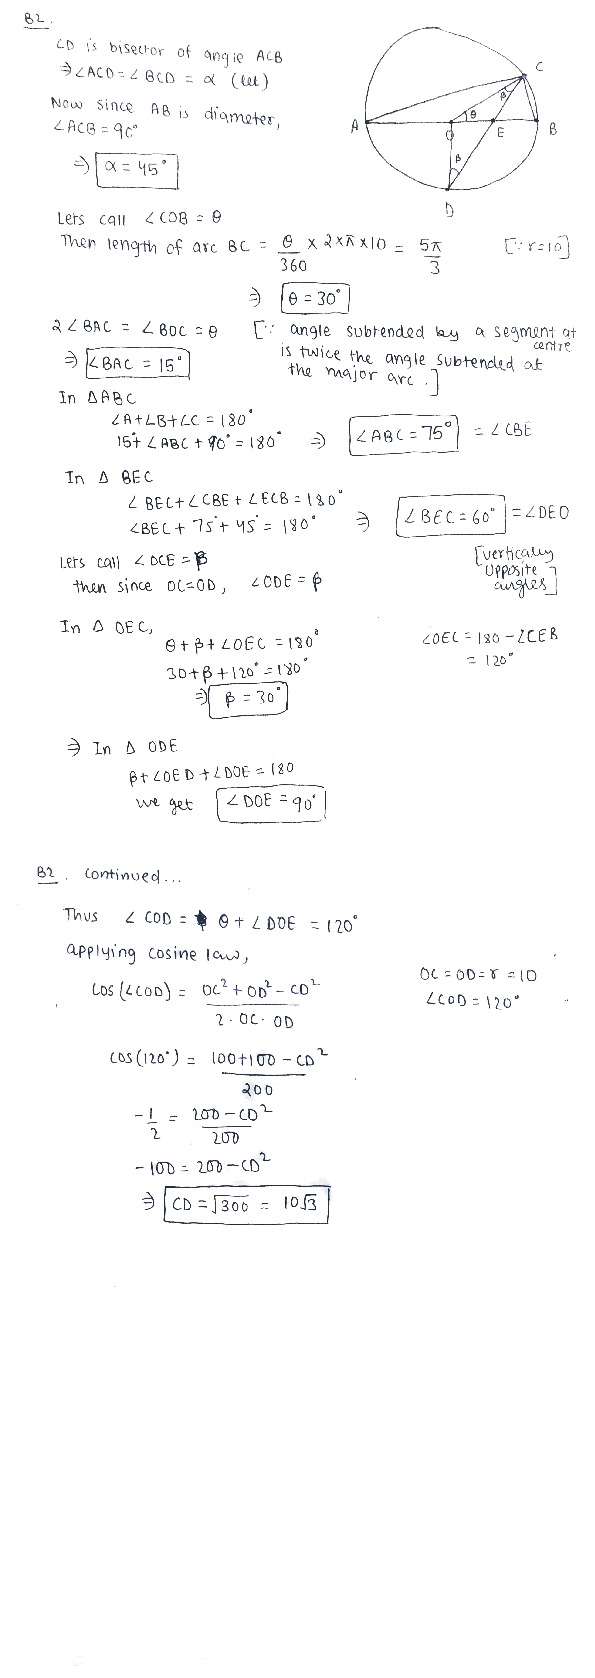 B2.
CD is bisector of angle ACB
⇒ ∠ACD = ∠BCD = α (let)
Now since AB is diameter,
∠ACB = 90°
⇒ α = 45°
A
B
C
D
E
O
θ
β
β
Lets call ∠COB = θ
Then length of arc BC = θ/360 × 2 × π × 10 = 5π/3 [∵ r=10]
⇒ θ = 30°
2∠BAC = ∠BOC = θ [∵ angle subtended by a segment at centre
is twice the angle subtended at
the major arc.]
⇒ ∠BAC = 15°
In ΔABC
∠A+∠B+∠C = 180°
15°+ ∠ABC + 90° = 180° ⇒ ∠ABC = 75° = ∠CBE
In Δ BEC
∠BEC + ∠CBE + ∠ECB = 180°
∠BEC + 75° + 45° = 180° ⇒ ∠BEC = 60° = ∠DEO
[vertically
opposite
angles]
Lets call ∠OCE = β
then since OC=OD, ∠ODE = β
In Δ OEC,
θ + β + ∠OEC = 180°
30 + β + 120° = 180°
⇒ β = 30°
∠OEC = 180 - ∠CEB
= 120°
⇒ In Δ ODE
β + ∠OED + ∠DOE = 180
we get ∠DOE = 90°
B2. continued...
Thus ∠COD = θ + ∠DOE = 120°
applying cosine law,
cos(∠COD) = OC² + OD² - CD² / 2·OC·OD
OC = OD = r = 10
∠COD = 120°
cos(120°) = 100+100 - CD² / 200
-1/2 = 200 - CD² / 200
-100 = 200 - CD²
⇒ CD = √300 = 10√3